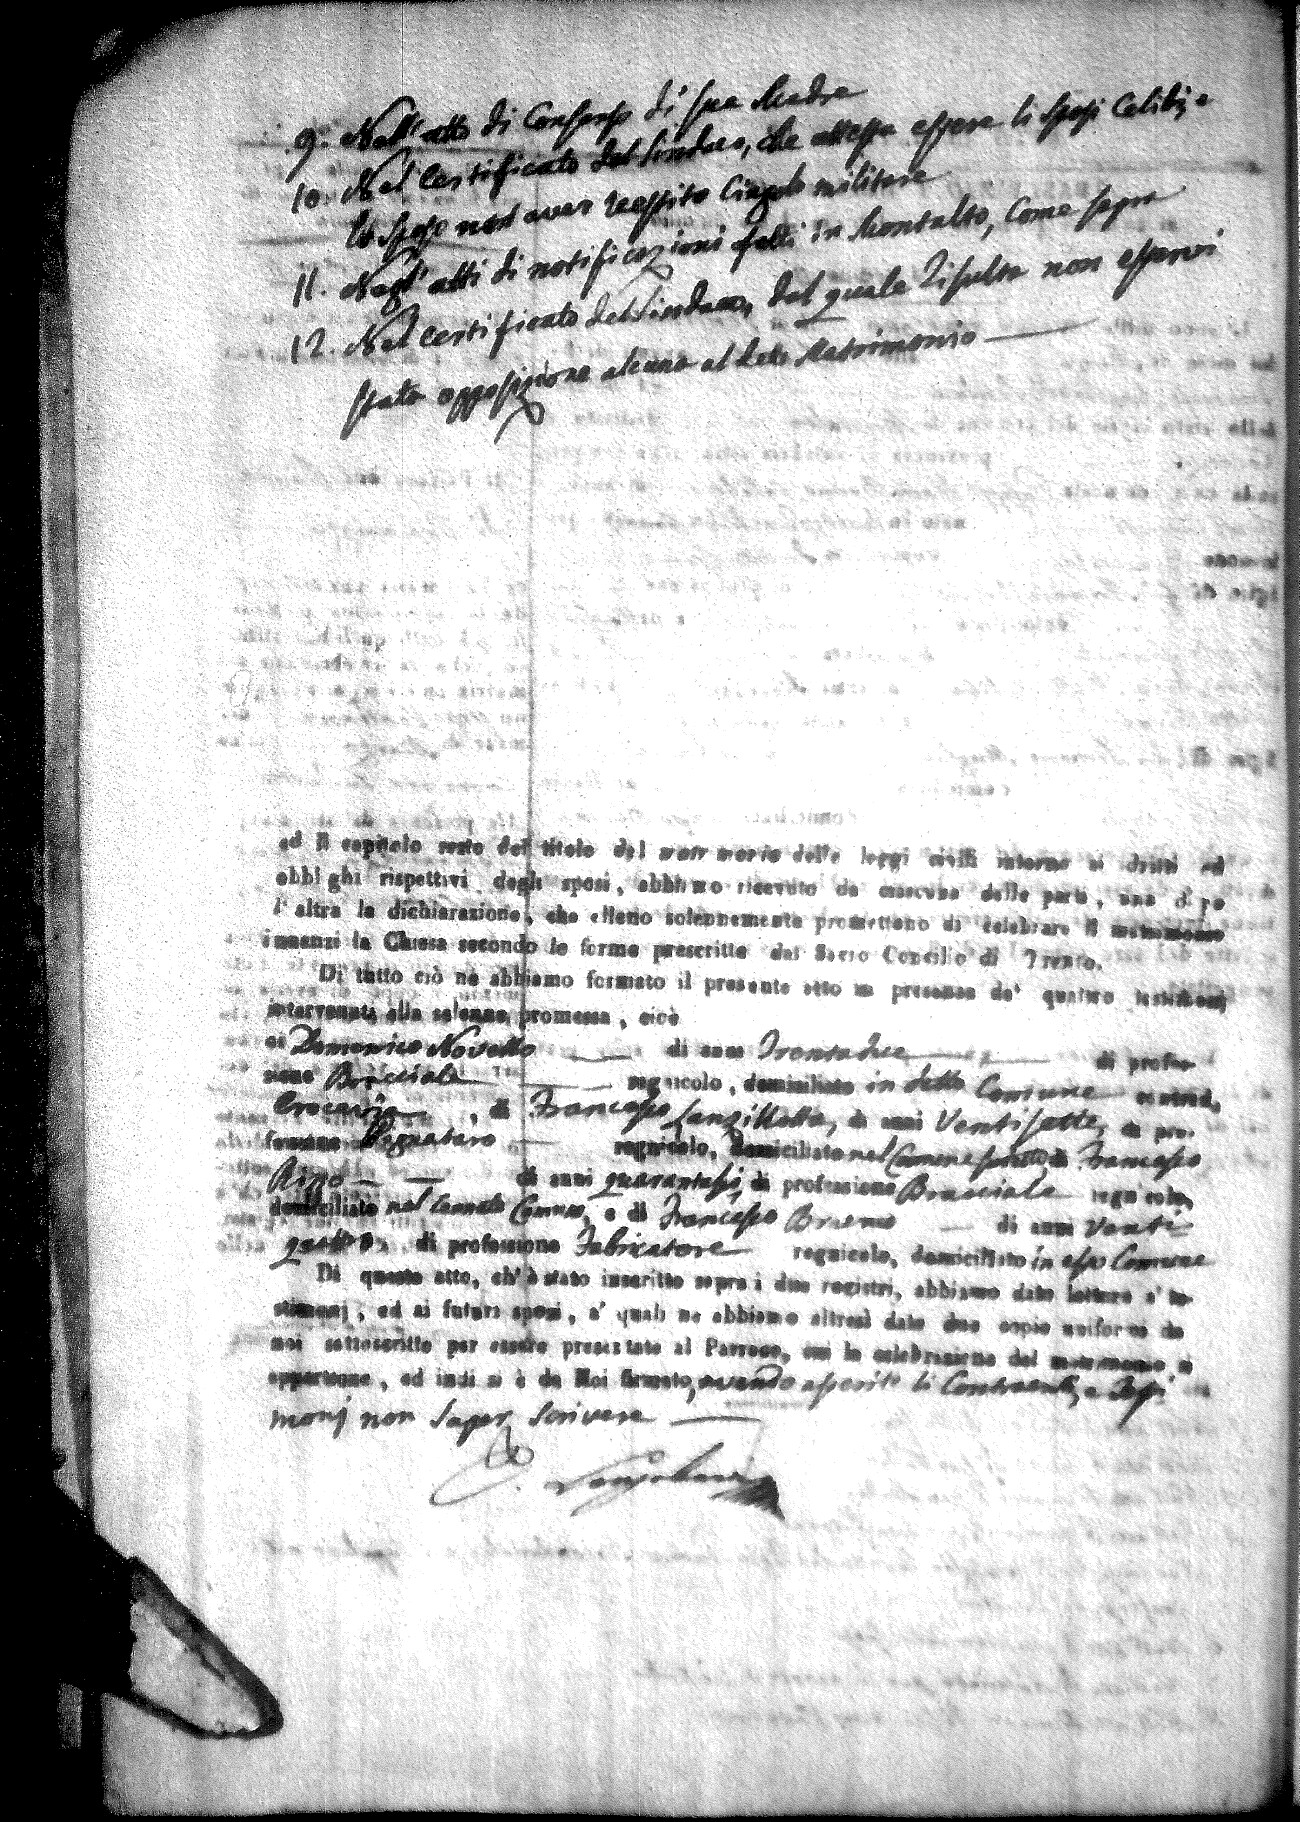 9. Nell'atto di Consenso di sua Madre
10. Nel Certificato del Sindaco, che attessa essere li sposi Celibi, e
lo sposo non aver vestito Cingolo militare
11. Negl'atti di notificazioni fatti in Montalto, Come sopra
12. Nel certificato del Sindaco, dal quale Risulta non esservi
stata opposizione alcuna al detto Matrimonio
ed il capitolo sesto del titolo del matrimonio delle leggi civili intorno ai dritti ed
obblighi rispettivi degli sposi, abbiamo ricevuto da ciascuna delle parti, una dopo
l'altra la dichiarazione, che elleno solennemente promettono di celebrare il matrimonio
innanzi la Chiesa secondo le forme prescritte dal Sacro Concilio di Trento.
Di tutto ciò ne abbiamo formato il presente atto in presenza de' quattro testimonj
intervenuti alla solenne promessa, cioè
di Domenico Novello di anni Trentadue di profes-
sione Bracciale regnicolo, domiciliato in detto Comune
, di Francesco Lanzillotta, di anni Ventisette, di pro-
fessione Pignataro regnicolo, domiciliato nel Comune di Francesco
Rizzo di anni quarantasei, di professione Bracciale regnicolo,
domiciliato nel Cennato Comune, e di Francesco Bruno di anni Venti
quattro, di professione Fabricatore regnicolo, domiciliato in esso Comune
Di questo atto, ch'è stato inscritto sopra i due registri, abbiamo dato lettura a' te-
stimonj, ed ai futuri sposi, a' quali ne abbiamo altresì date due copie uniformi da
noi sottoscritte per essere presentate al Parroco, cui la celebrazione del matrimonio si
appartiene, ed indi si è da Noi firmato, avendo asserito li Contraenti, e Testi
monj non Saper Scrivere